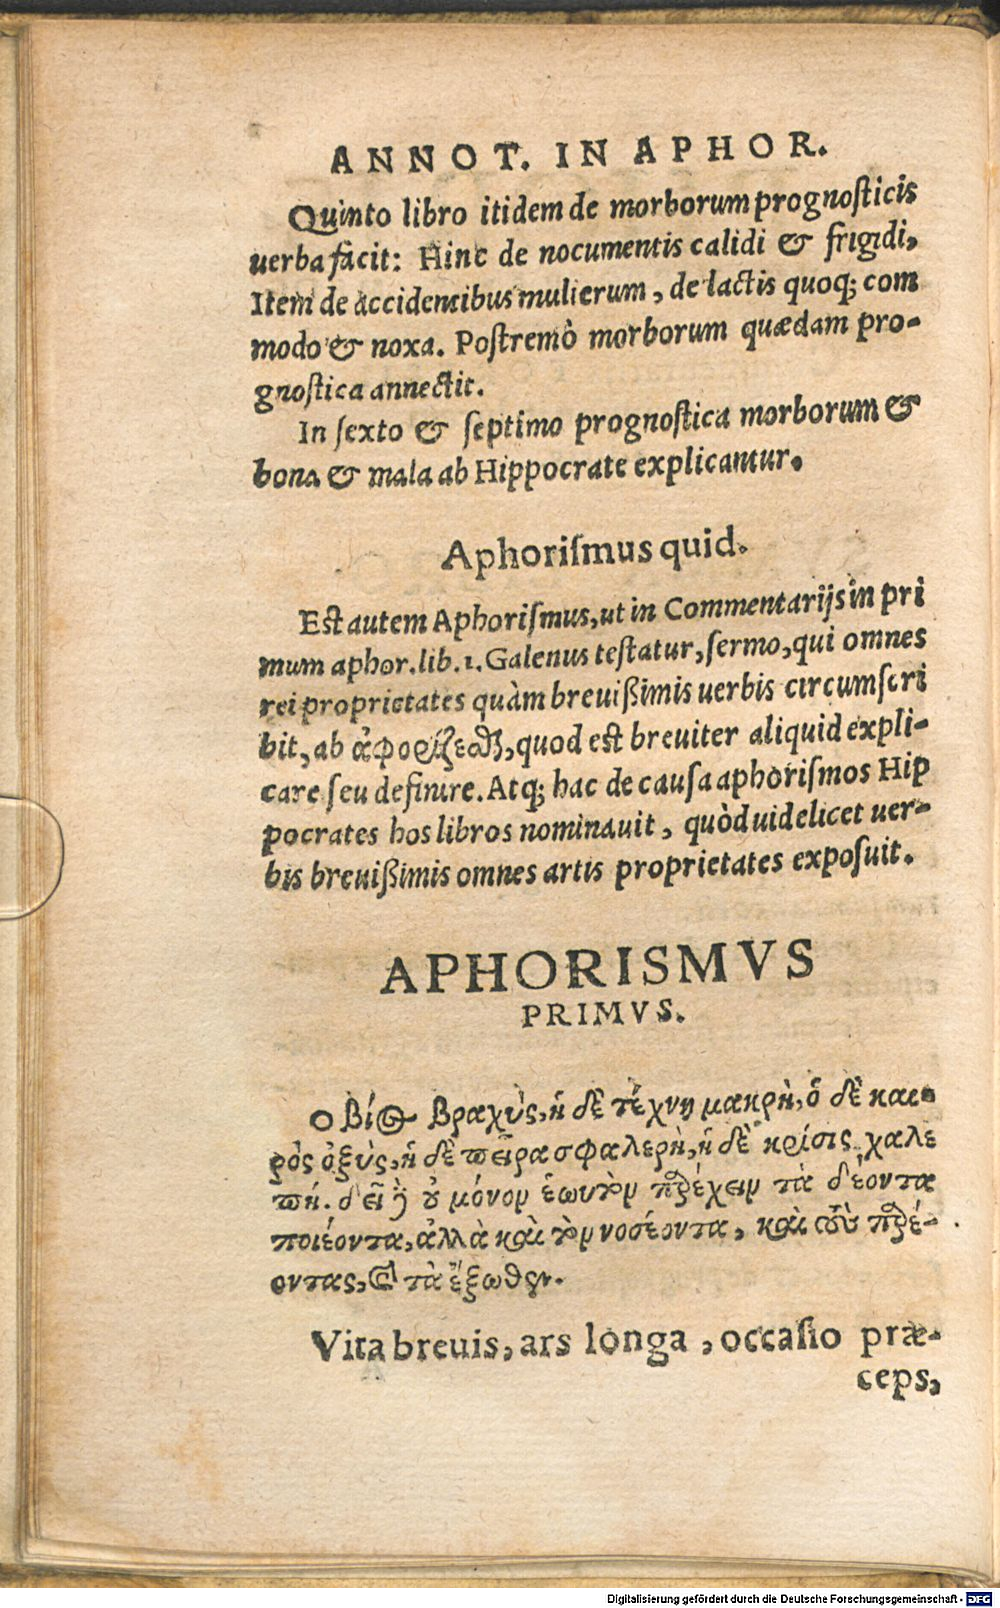 ANNOT. IN APHOR.
Quinto libro itidem de morborum prognoſticis
uerba facit: Hinc de nocumentis calidi & frigidi,
Item de accidentibus mulierum, de lactis quoq; com
modo & noxa. Poſtremò morborum quædam pro-
gnoſtica annectit.
In ſexto & ſeptimo prognoſtica morborum &
bona & mala ab Hippocrate explicantur.
Aphoriſmus quid.
Eſt autem Aphoriſmus, ut in Commentarijs in pri
mum aphor. lib. 1. Galenus teſtatur, ſermo, qui omnes
rei proprietates quàm breuißimis uerbis circumſcri
bit, ab ἀφορίζεσθαι, quod eſt breuiter aliquid expli-
care ſeu definire. Atq; hac de cauſa aphoriſmos Hip
pocrates hos libros nominauit, quòd uidelicet uer-
bis breuißimis omnes artis proprietates expoſuit.
APHORISMVS
PRIMVS.
Ο βίος βραχὺς, ἡ δὲ τέχνη μακρὴ, ὁ δὲ και-
ρὸς ὀξὺς, ἡ δὲ πεῖρα σφαλερὴ, ἡ δὲ κρίσις χαλε
πή. δεῖ δὲ οὐ μόνον ἑωυτὸν παρέχειν τὰ δέοντα
ποιέοντα, ἀλλὰ καὶ τὸν νοσέοντα, καὶ τοὺς παρέ-
οντας, καὶ τὰ ἔξωθεν.
Vita breuis, ars longa, occaſio præ-
ceps,
Digitalisierung gefördert durch die Deutsche Forschungsgemeinschaft - DFG